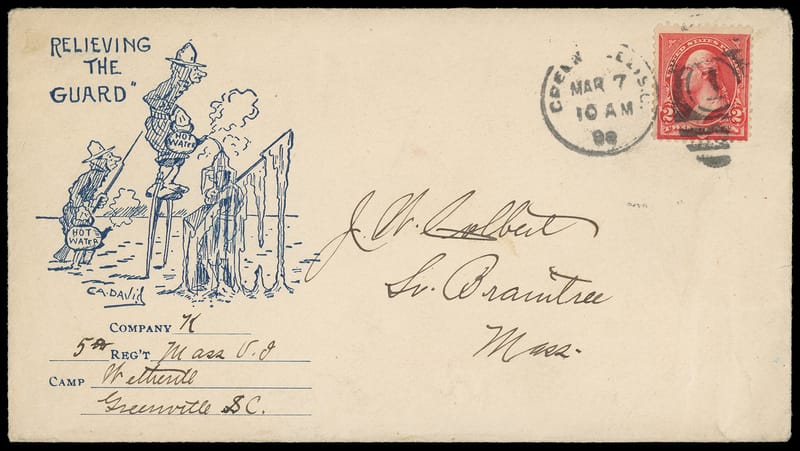 RELIEVING
THE
GUARD"
HOT
WATER
HOT
WATER
C.A. DAVID
COMPANY K
5th REG'T Mass V. I
CAMP Wetherill
Greenville S.C.
MAR 7
10 AM
UNITED STATES POSTAGE
2
2
J. W. Colbert
So. Braintree
Mass.